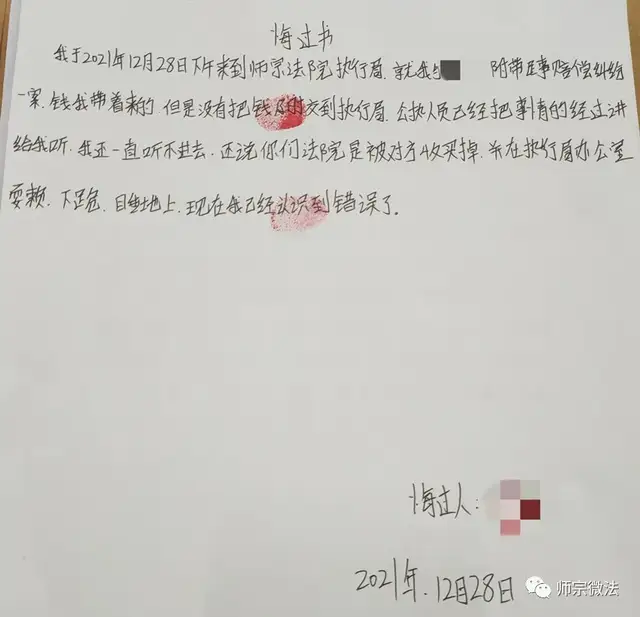 悔过书
我于2021年12月28日下午来到师宗法院执行局.就我与 附带民事赔偿纠纷
一案.钱我带着来的.但是没有把钱及时交到执行局.公执人员已经把事情的经过讲
给我听.我还一直听不进去.还说你们法院是被对方收买掉.并在执行局办公室
耍赖. 地上.现在我已经认识到错误了。
悔过人:
2021年.12月28日
师宗微法